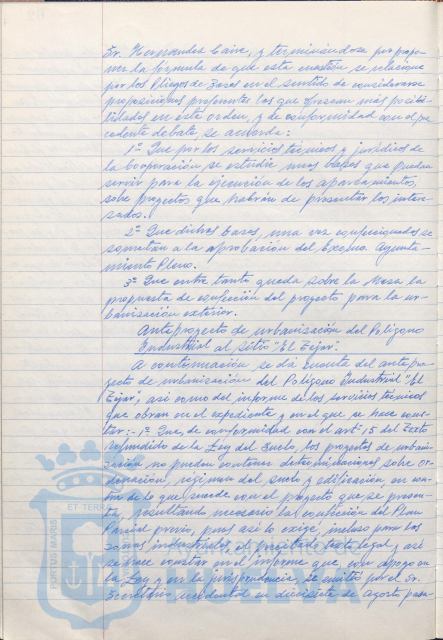 Sr. Hernández Caire, y terminándose por propo-
ner la fórmula de que esta cuestión se relacione
por los Pliegos de Bases en el sentido de considerarse
proposiciones preferentes las que ofrezcan más posibi-
lidades en este orden, y de conformidad con el pre-
cedente debate, se acuerda:
1º Que por los servicios técnicos y jurídicos de
la Corporación se estudie unas bases que puedan
servir para la ejecución de los aparcamientos,
sobre proyectos que habrán de presentar los intere-
sados.
2º Que dichas bases, una vez confeccionadas se
sometan a la aprobación del Excmo. Ayunta-
miento Pleno.
3º Que entre tanto queda sobre la Mesa la
propuesta de confección del proyecto para la ur-
banización exterior.
Anteproyecto de urbanización del Polígono
Industrial al sitio "El Tejar".
A continuación se dá cuenta del antepro-
yecto de urbanización del Polígono Industrial "El
Tejar", así como del informe de los servicios técnicos
que obran en el expediente y en el que se hace cons-
tar: -1º Que, de conformidad con el artº 15 del Texto
refundido de la Ley del Suelo, los proyectos de urbani-
zación no pueden contener determinaciones sobre or-
denación, régimen del suelo y edificación, en con-
tra de lo que sucede con el proyecto que se presen-
ta, resultando necesario la confección del Plan
Parcial previo, pues así lo exige, incluso para las
zonas industriales el precitado texto legal y así
se hace constar en el informe que, con apoyo en
la Ley y en la jurisprudencia, se emitió por el Sr.
Secretario accidental en diecisiete de Agosto pasa-
PORTUS MARIS ET TERRAE
HUELVA